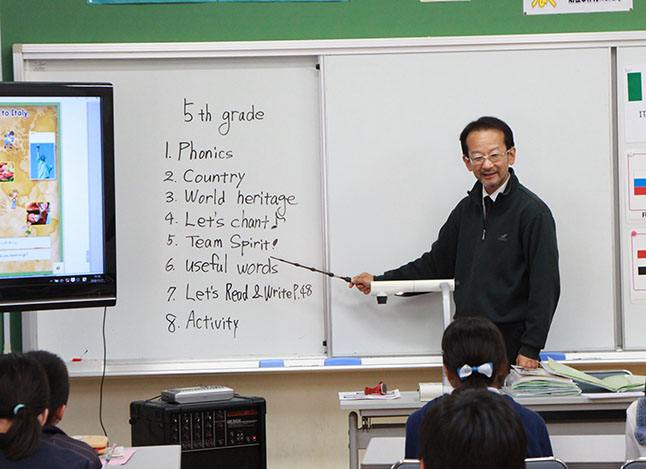 to Italy
5th grade
1. Phonics
2. Country
3. World heritage
4. Let's chant♪
5. Team Spirit!
6. useful words
7. Let's Read & Write P.48
8. Activity